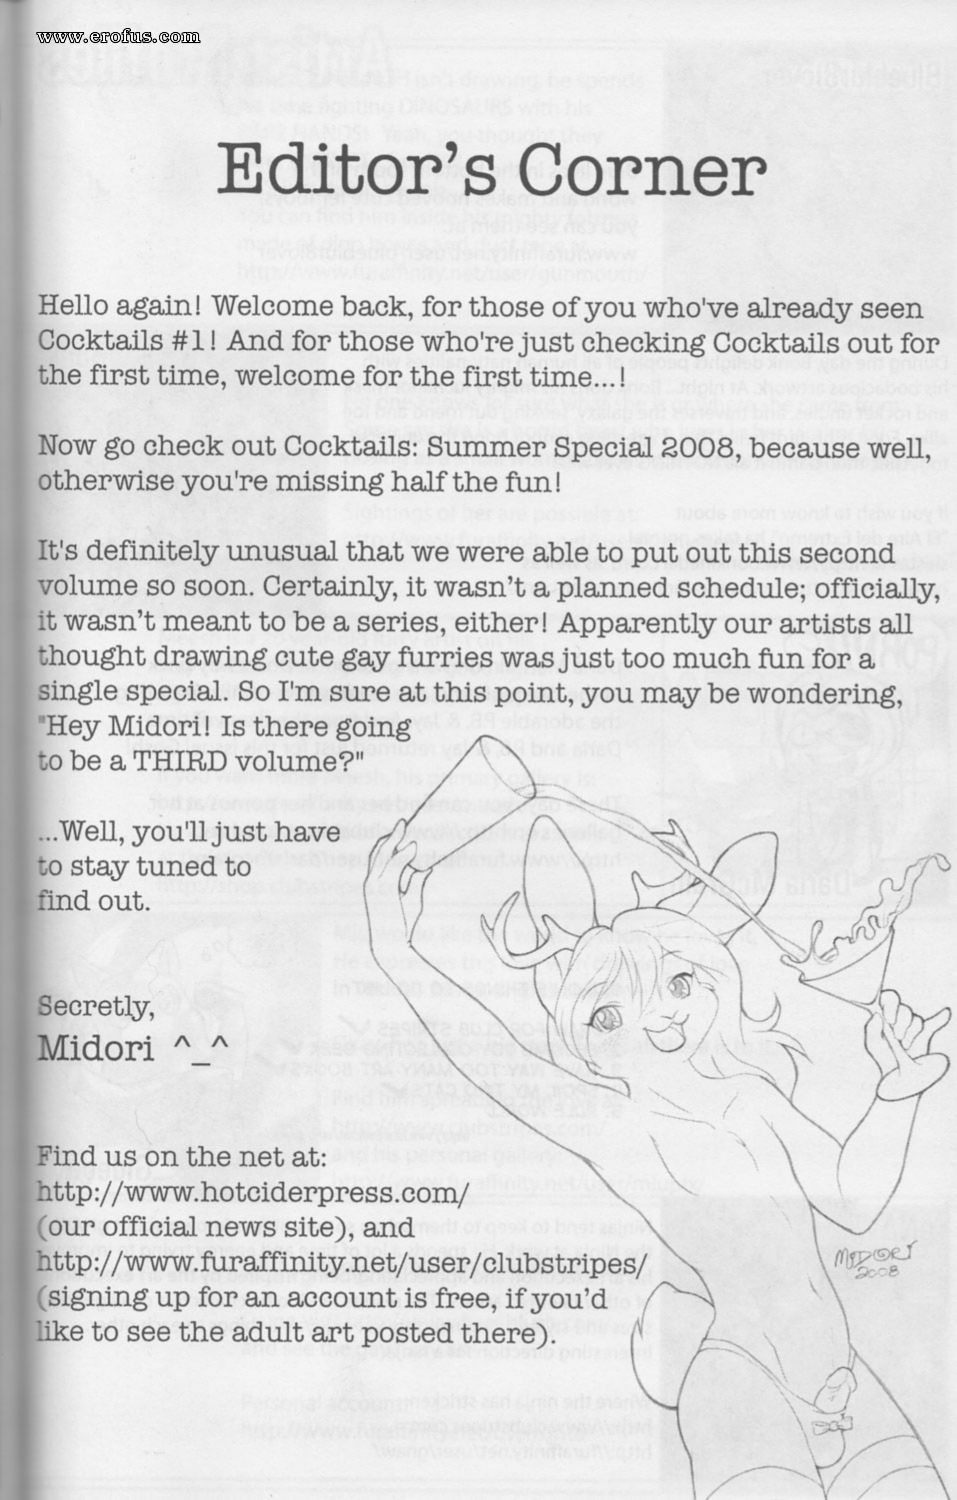 www.erofus.com
Editor's Corner
Hello again! Welcome back, for those of you who've already seen
Cocktails #1! And for those who're just checking Cocktails out for
the first time, welcome for the first time...!
Now go check out Cocktails: Summer Special 2008, because well,
otherwise you're missing half the fun!
It's definitely unusual that we were able to put out this second
volume so soon. Certainly, it wasn't a planned schedule; officially,
it wasn't meant to be a series, either! Apparently our artists all
thought drawing cute gay furries was just too much fun for a
single special. So I'm sure at this point, you may be wondering,
"Hey Midori! Is there going
to be a THIRD volume?"
...Well, you'll just have
to stay tuned to
find out.
Secretly,
Midori ^_^
Find us on the net at:
http://www.hotciderpress.com/
(our official news site), and
http://www.furaffinity.net/user/clubstripes/
(signing up for an account is free, if you'd
like to see the adult art posted there).
MIDORI
2008